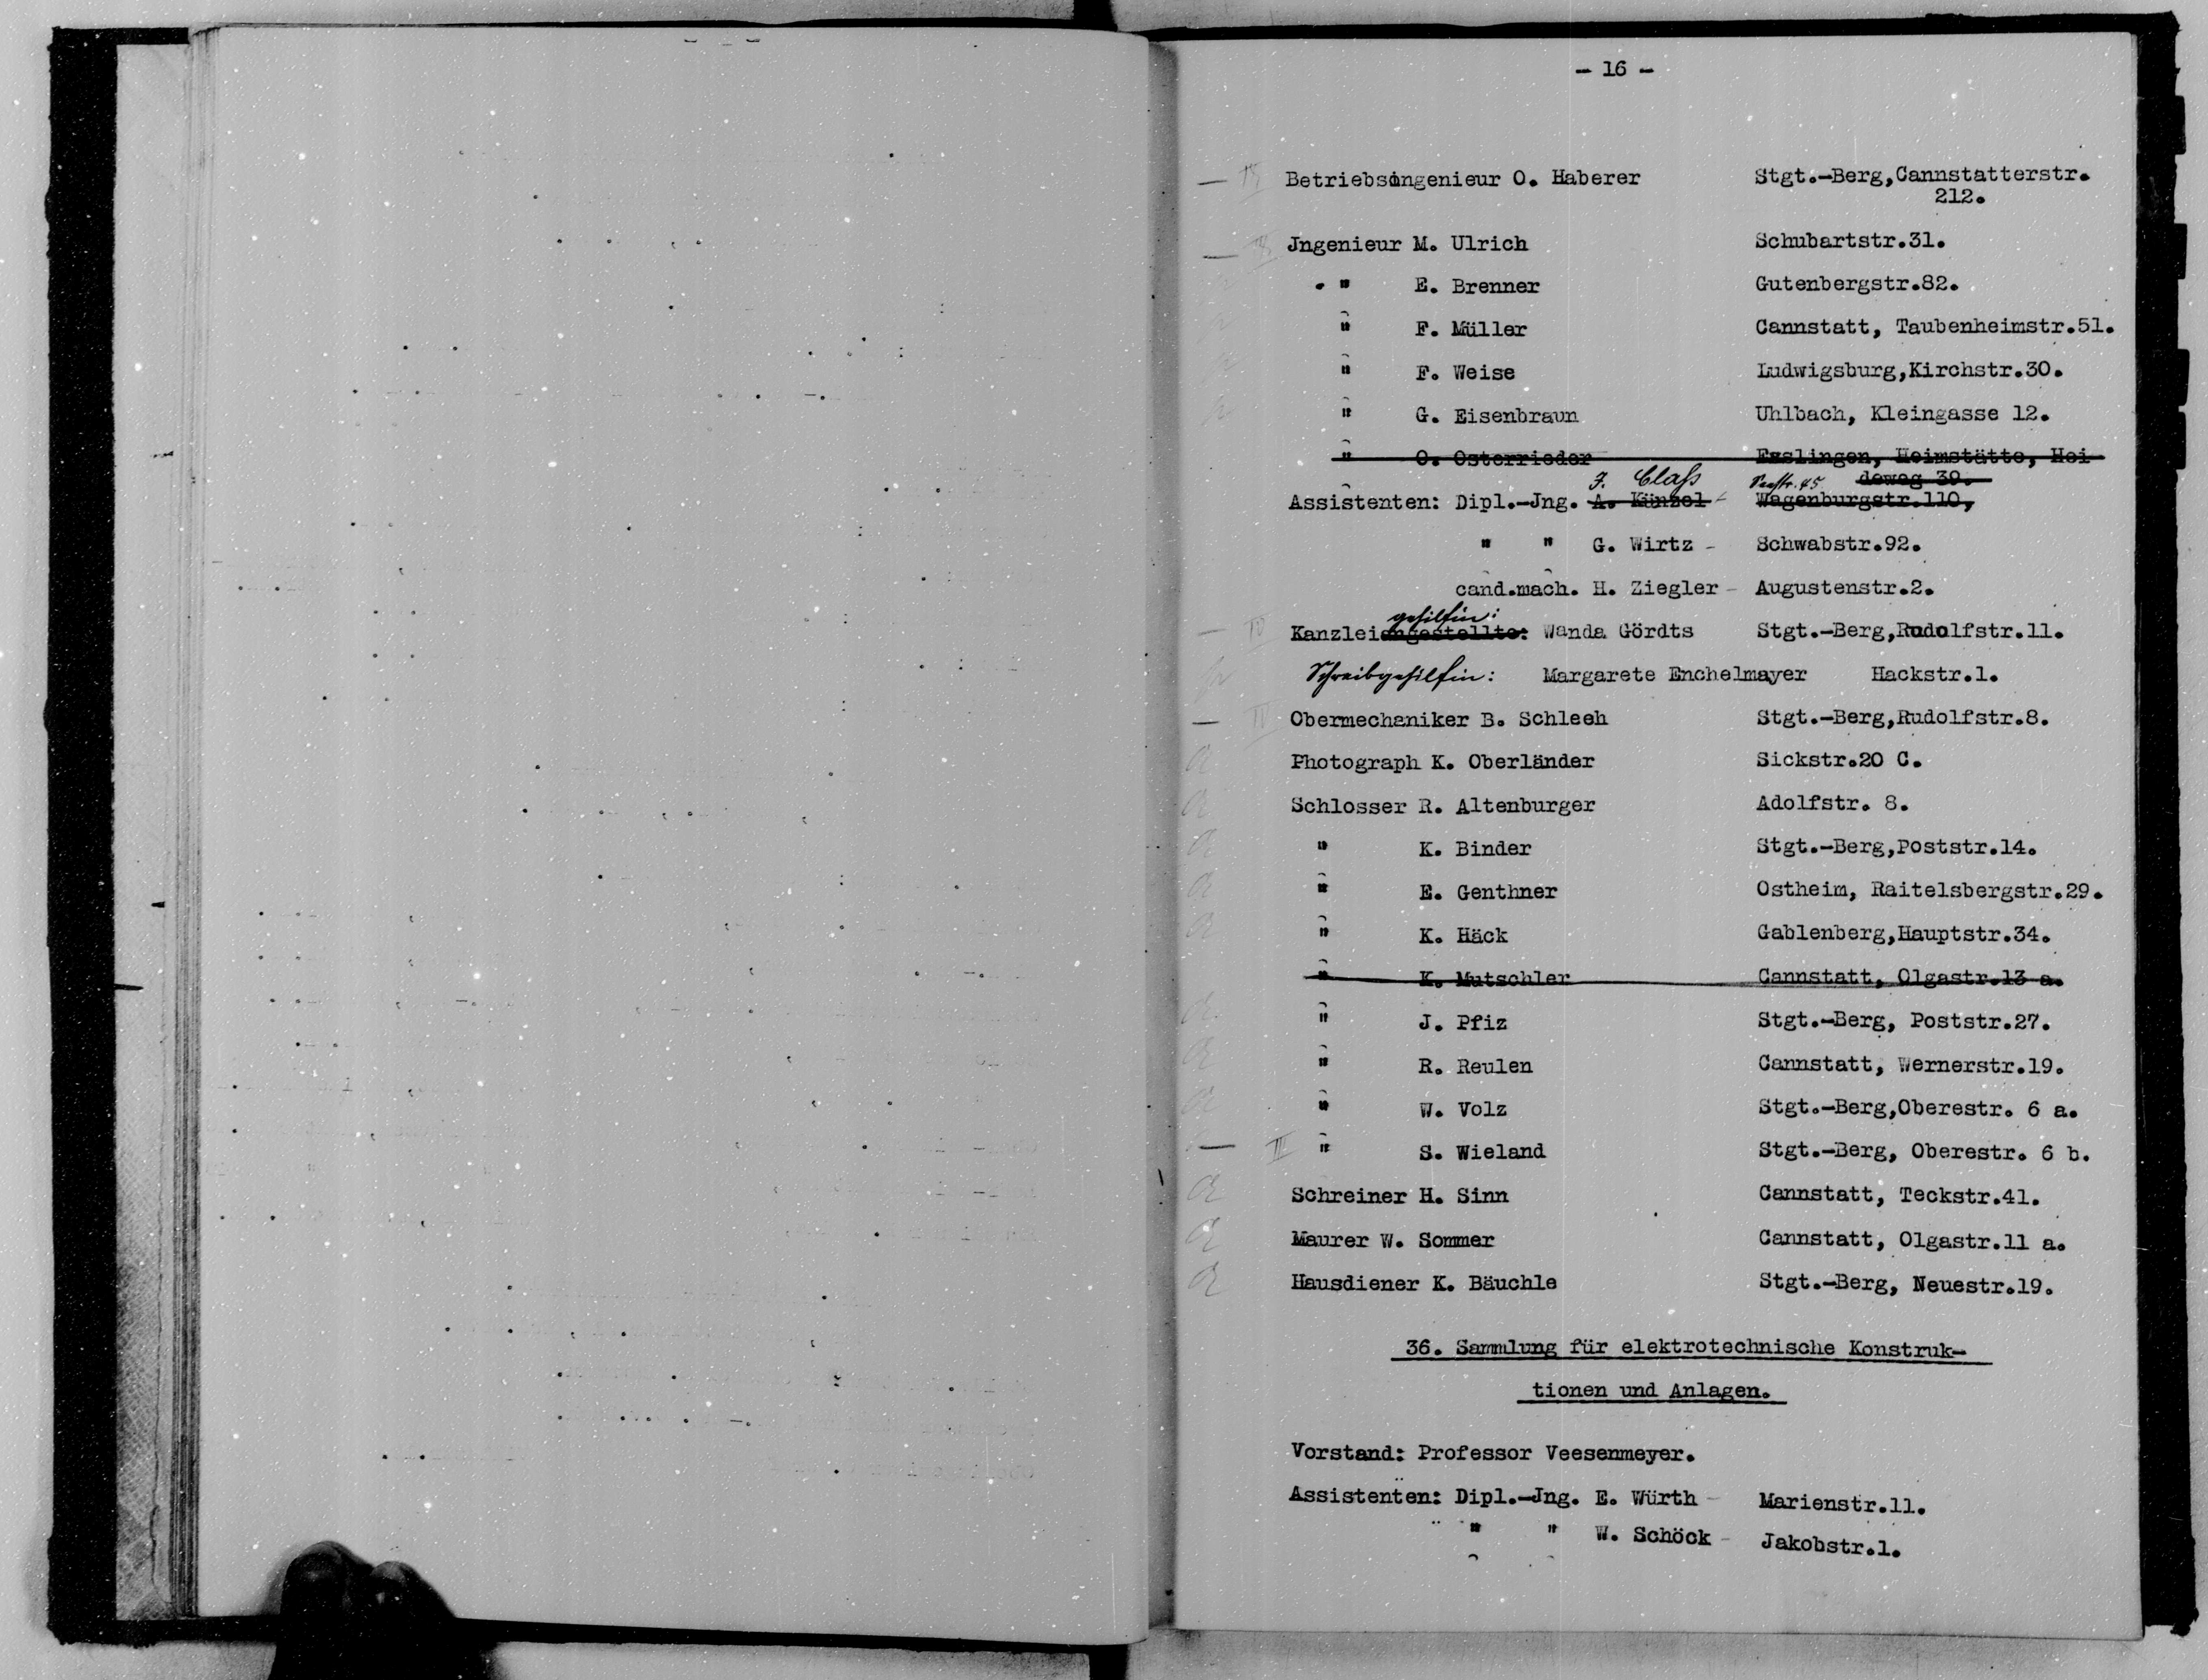 - 16 -
Betriebsingenieur O. Haberer Stgt.-Berg,Cannstatterstr.
212.
Jngenieur M. Ulrich Schubartstr.31.
" E. Brenner Gutenbergstr.82.
" F. Müller Cannstatt, Taubenheimstr.51.
" F. Weise Ludwigsburg,Kirchstr.30.
" G. Eisenbraun Uhlbach, Kleingasse 12.
" O. Osterrieder Esslingen, Heimstätte, Hei-
deweg 39.
J. Claß
Assistenten: Dipl.-Jng. A. Künzel Wagenburgstr.110,
" " G. Wirtz - Schwabstr.92.
cand.mach. H. Ziegler - Augustenstr.2.
gehilfin:
Kanzleiangestellte: Wanda Gördts Stgt.-Berg,Rudolfstr.11.
Schreibgehilfin: Margarete Enchelmayer Hackstr.1.
IV Obermechaniker B. Schleeh Stgt.-Berg,Rudolfstr.8.
Photograph K. Oberländer Sickstr.20 C.
Schlosser R. Altenburger Adolfstr. 8.
" K. Binder Stgt.-Berg,Poststr.14.
" E. Genthner Ostheim, Raitelsbergstr.29.
" K. Häck Gablenberg,Hauptstr.34.
" K. Mutschler Cannstatt, Olgastr.13 a.
" J. Pfiz Stgt.-Berg, Poststr.27.
" R. Reulen Cannstatt, Wernerstr.19.
" W. Volz Stgt.-Berg,Oberestr. 6 a.
III " S. Wieland Stgt.-Berg, Oberestr. 6 b.
Schreiner H. Sinn Cannstatt, Teckstr.41.
Maurer W. Sommer Cannstatt, Olgastr.11 a.
Hausdiener K. Bäuchle Stgt.-Berg, Neuestr.19.
36. Sammlung für elektrotechnische Konstruk-
tionen und Anlagen.
Vorstand: Professor Veesenmeyer.
Assistenten: Dipl.-Jng. E. Würth - Marienstr.11.
" " W. Schöck - Jakobstr.1.